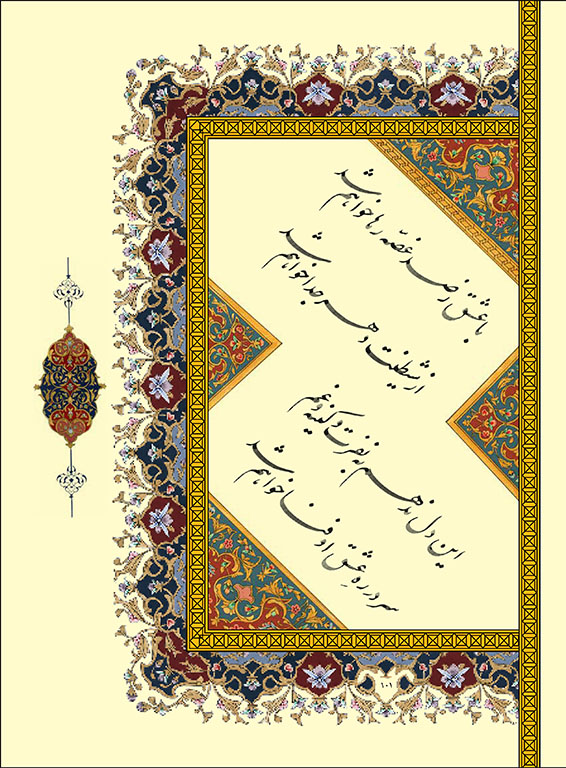 با عشق ز صد غصّه رها خواهم شد
از شیطنت دهر جدا خواهم شد
این دل ندهم به نفرت و کینه و غم
سر در رهِ عشق او فنا خواهم شد
۱۰۱